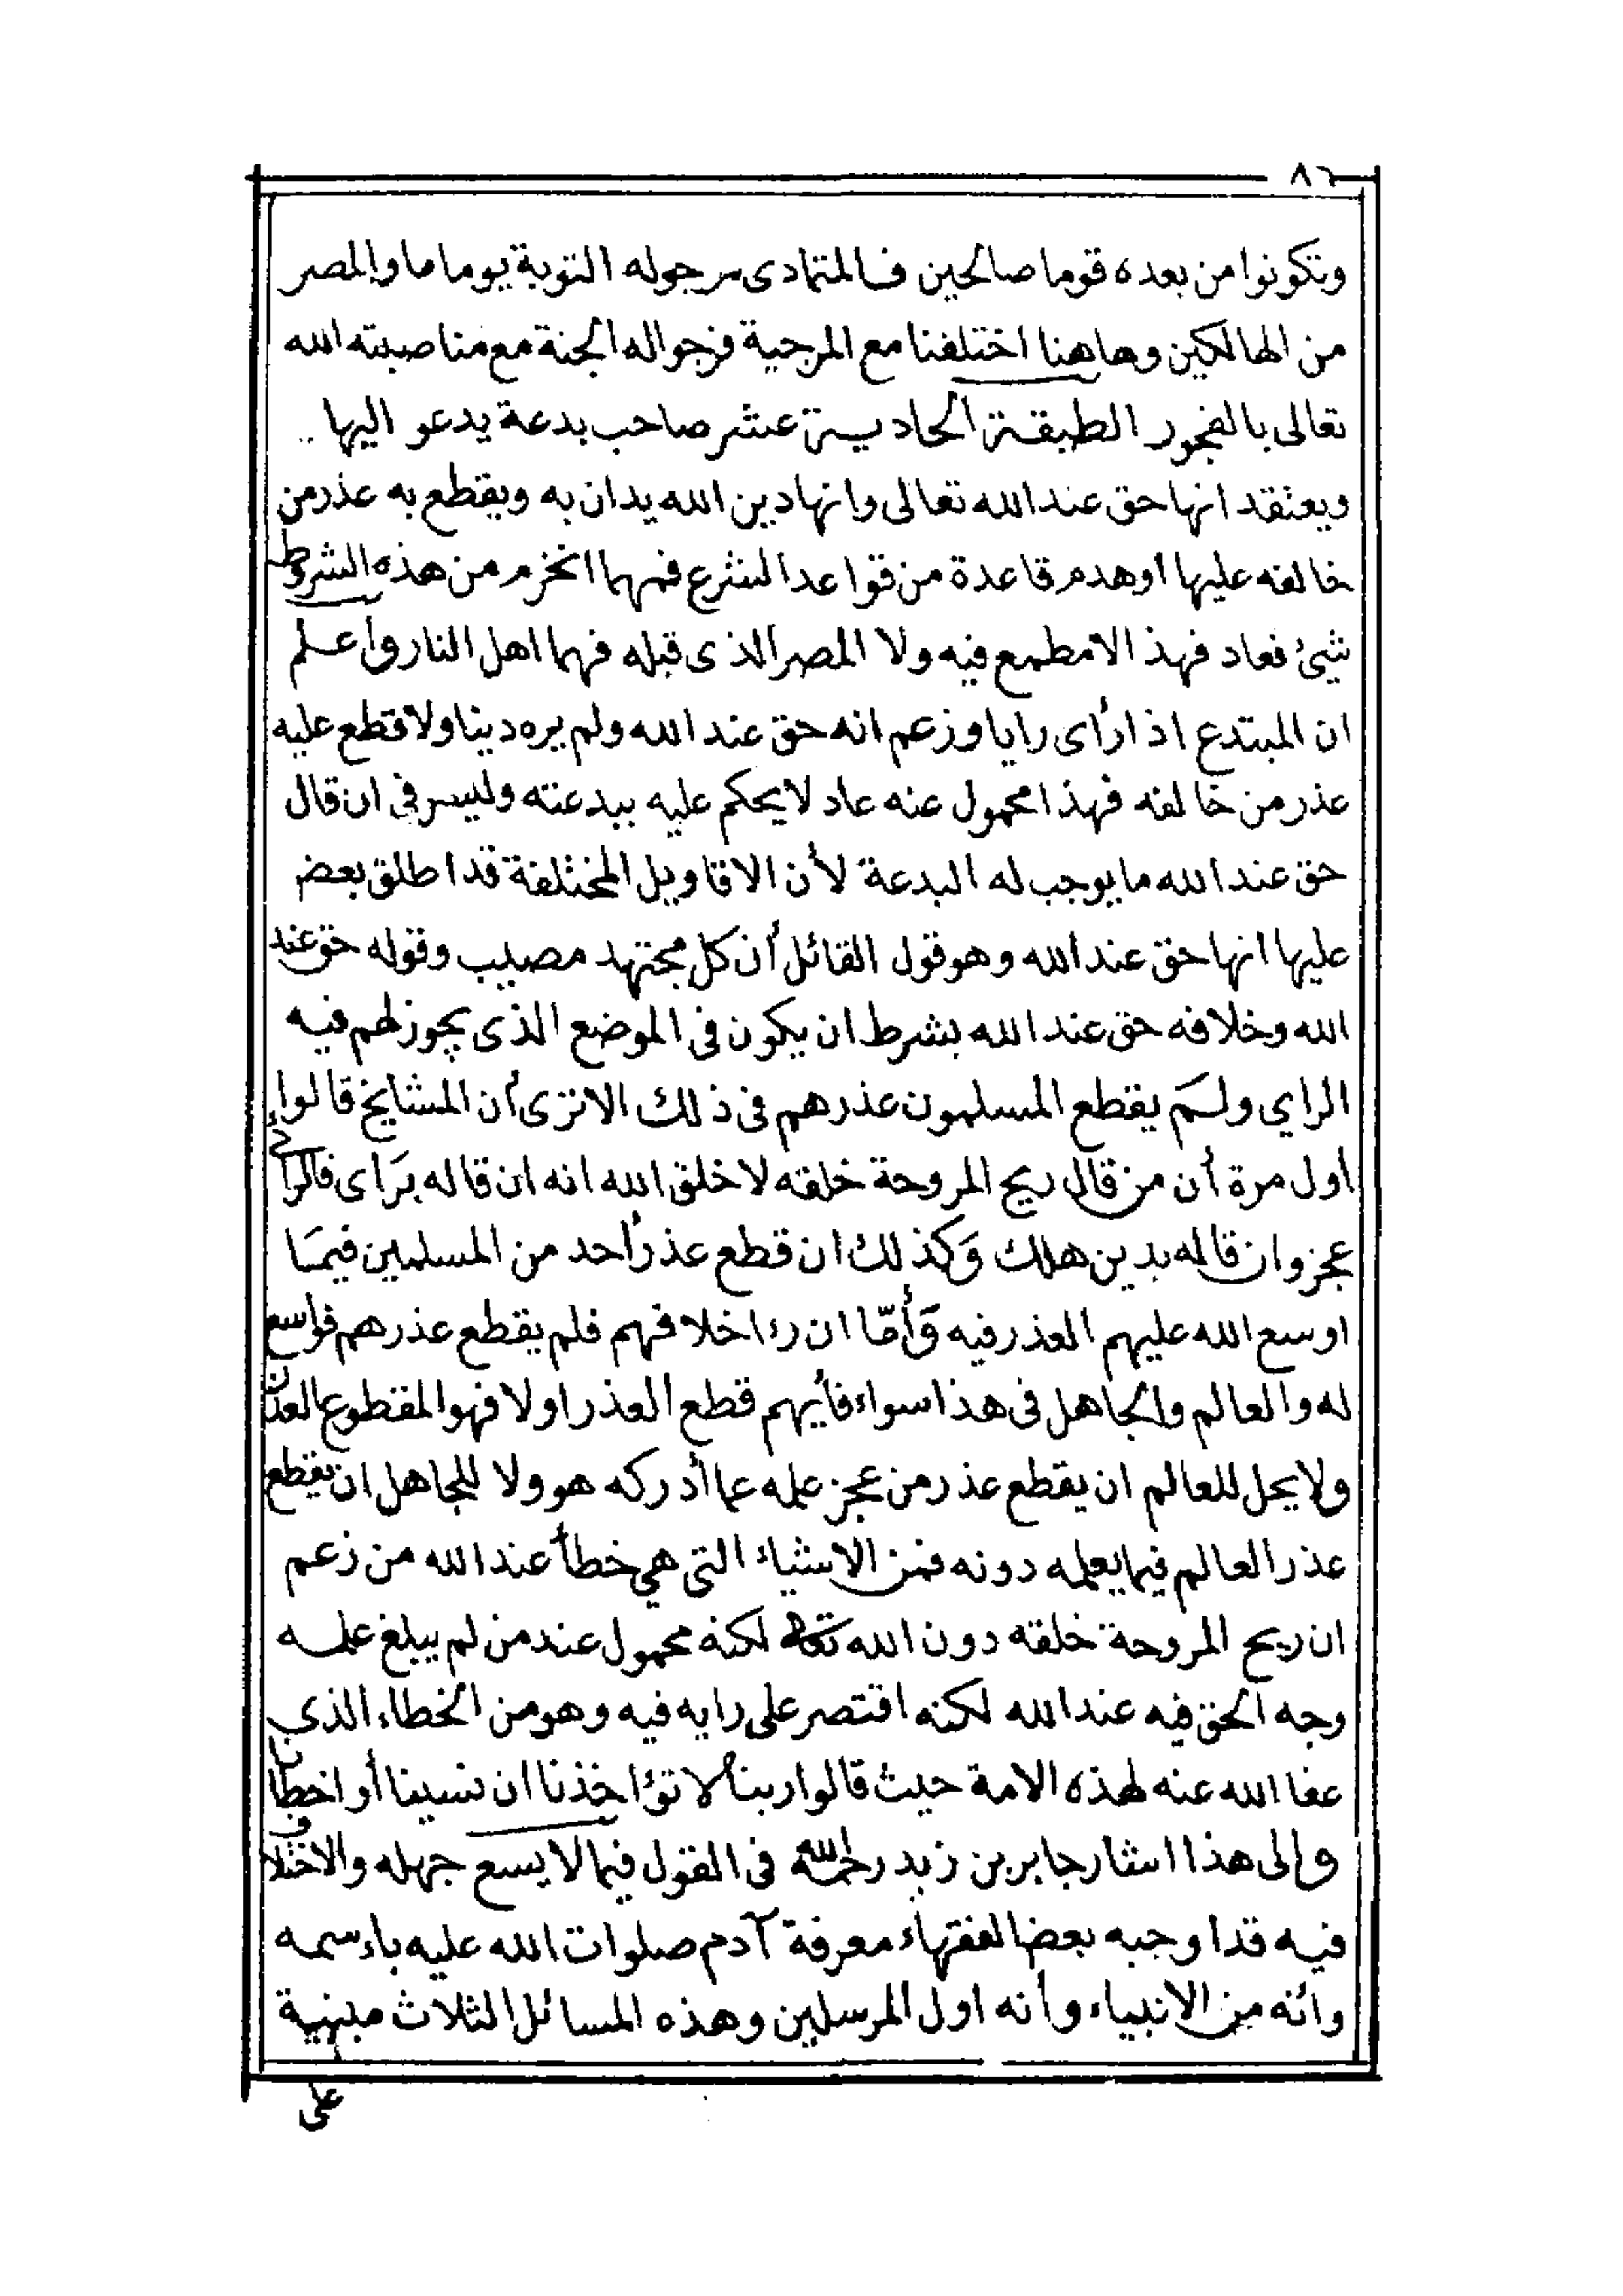 ٨٦
وتكونوا من بعده قوما صالحين فالمتمادى نرجوله التوبة يوما ما والمصر
من الهالكين وهاهنا اختلفنا مع المرجية فرجوا له الجنة مع مناصبته الله
تعالى بالفجور الطبقة الحادية عشر صاحب بدعة يدعو اليها
ويعتقد انها حق عند الله تعالى وانها دين الله يدان به ويقطع به عذر من
خالفه عليها او هدم قاعدة من قواعد الشرع فمهما انخزم من هذه الشروط
شيئ فعاد فهذ الامطمع فيه ولا المصر الذى قبله فهما اهل النار واعلم
ان المبتدع اذا رأى رايا وزعم انه حق عند الله ولم يره دينا ولا قطع عليه
عذر من خالفه فهذا محمول عنه عاد لا يحكم عليه ببدعته وليس فى ان قال
حق عند الله ما يوجب له البدعة لأن الاقاويل المختلفة قد اطلق بعض
عليها انها حق عند الله وهو قول القائل أن كل مجتهد مصيب وقوله حق عند
الله وخلافه حق عند الله بشرط ان يكون فى الموضع الذى يجوز لهم فيه
الراي ولم يقطع المسلمون عذرهم فى ذلك الا ترى أن المشايخ قالوا
أول مرة أن من قال ريح المروحة خلقه لا خلق الله انه ان قاله برَاى فالراي
عجز وان قاله بدين هلك وَكذلك ان قطع عذر أحد من المسلمين فيمَا
اوسع الله عليهم العذر فيه وَأمّا ان رءا خلافهم فلم يقطع عذرهم فواسع
له والعالم والجاهل فى هذا سواء فأيهم قطع العذر اولا فهو المقطوع العذر
ولا يحل للعالم ان يقطع عذر من عجز علمه عما أدركه هو ولا للجاهل ان يقطع
عذر العالم فيما يعلمه دونه فمن الاشياء التى هي خطأ عند الله من زعم
ان ريح المروحة خلقه دون الله تعالى لكنه محمول عند من لم يبلغ علمه
وجه الحق فيه عند الله لكنه اقتصر على رايه فيه وهو من الخطاء الذي
عفا الله عنه لهذه الامة حيث قالوا ربنا لا تؤاخذنا ان نسينا أو اخطأنا
والى هذا اشار جابر بن زيد رحمه الله فى القول فيما لا يسع جهله والاختلاف
فيه قد اوجبه بعض الفقهاء معرفة آدم صلوات الله عليه باءسمه
وأنه من الانبياء وأنه اول المرسلين وهذه المسائل الثلاث مبنية
على